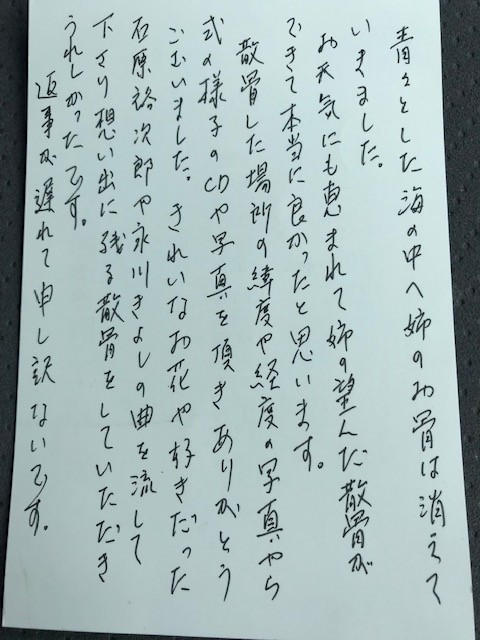 青々とした海の中へ姉のお骨は消えて
いきました。
お天気にも恵まれて姉の望んだ散骨が
できて本当に良かったと思います。
散骨した場所の緯度や経度の写真やら
式の様子のCDや写真を頂きありがとう
ございました。きれいなお花や好きだった
石原裕次郎や氷川きよしの曲を流して
下さり想い出に残る散骨をしていただき
うれしかったです。
返事が遅れて申し訳ないです。